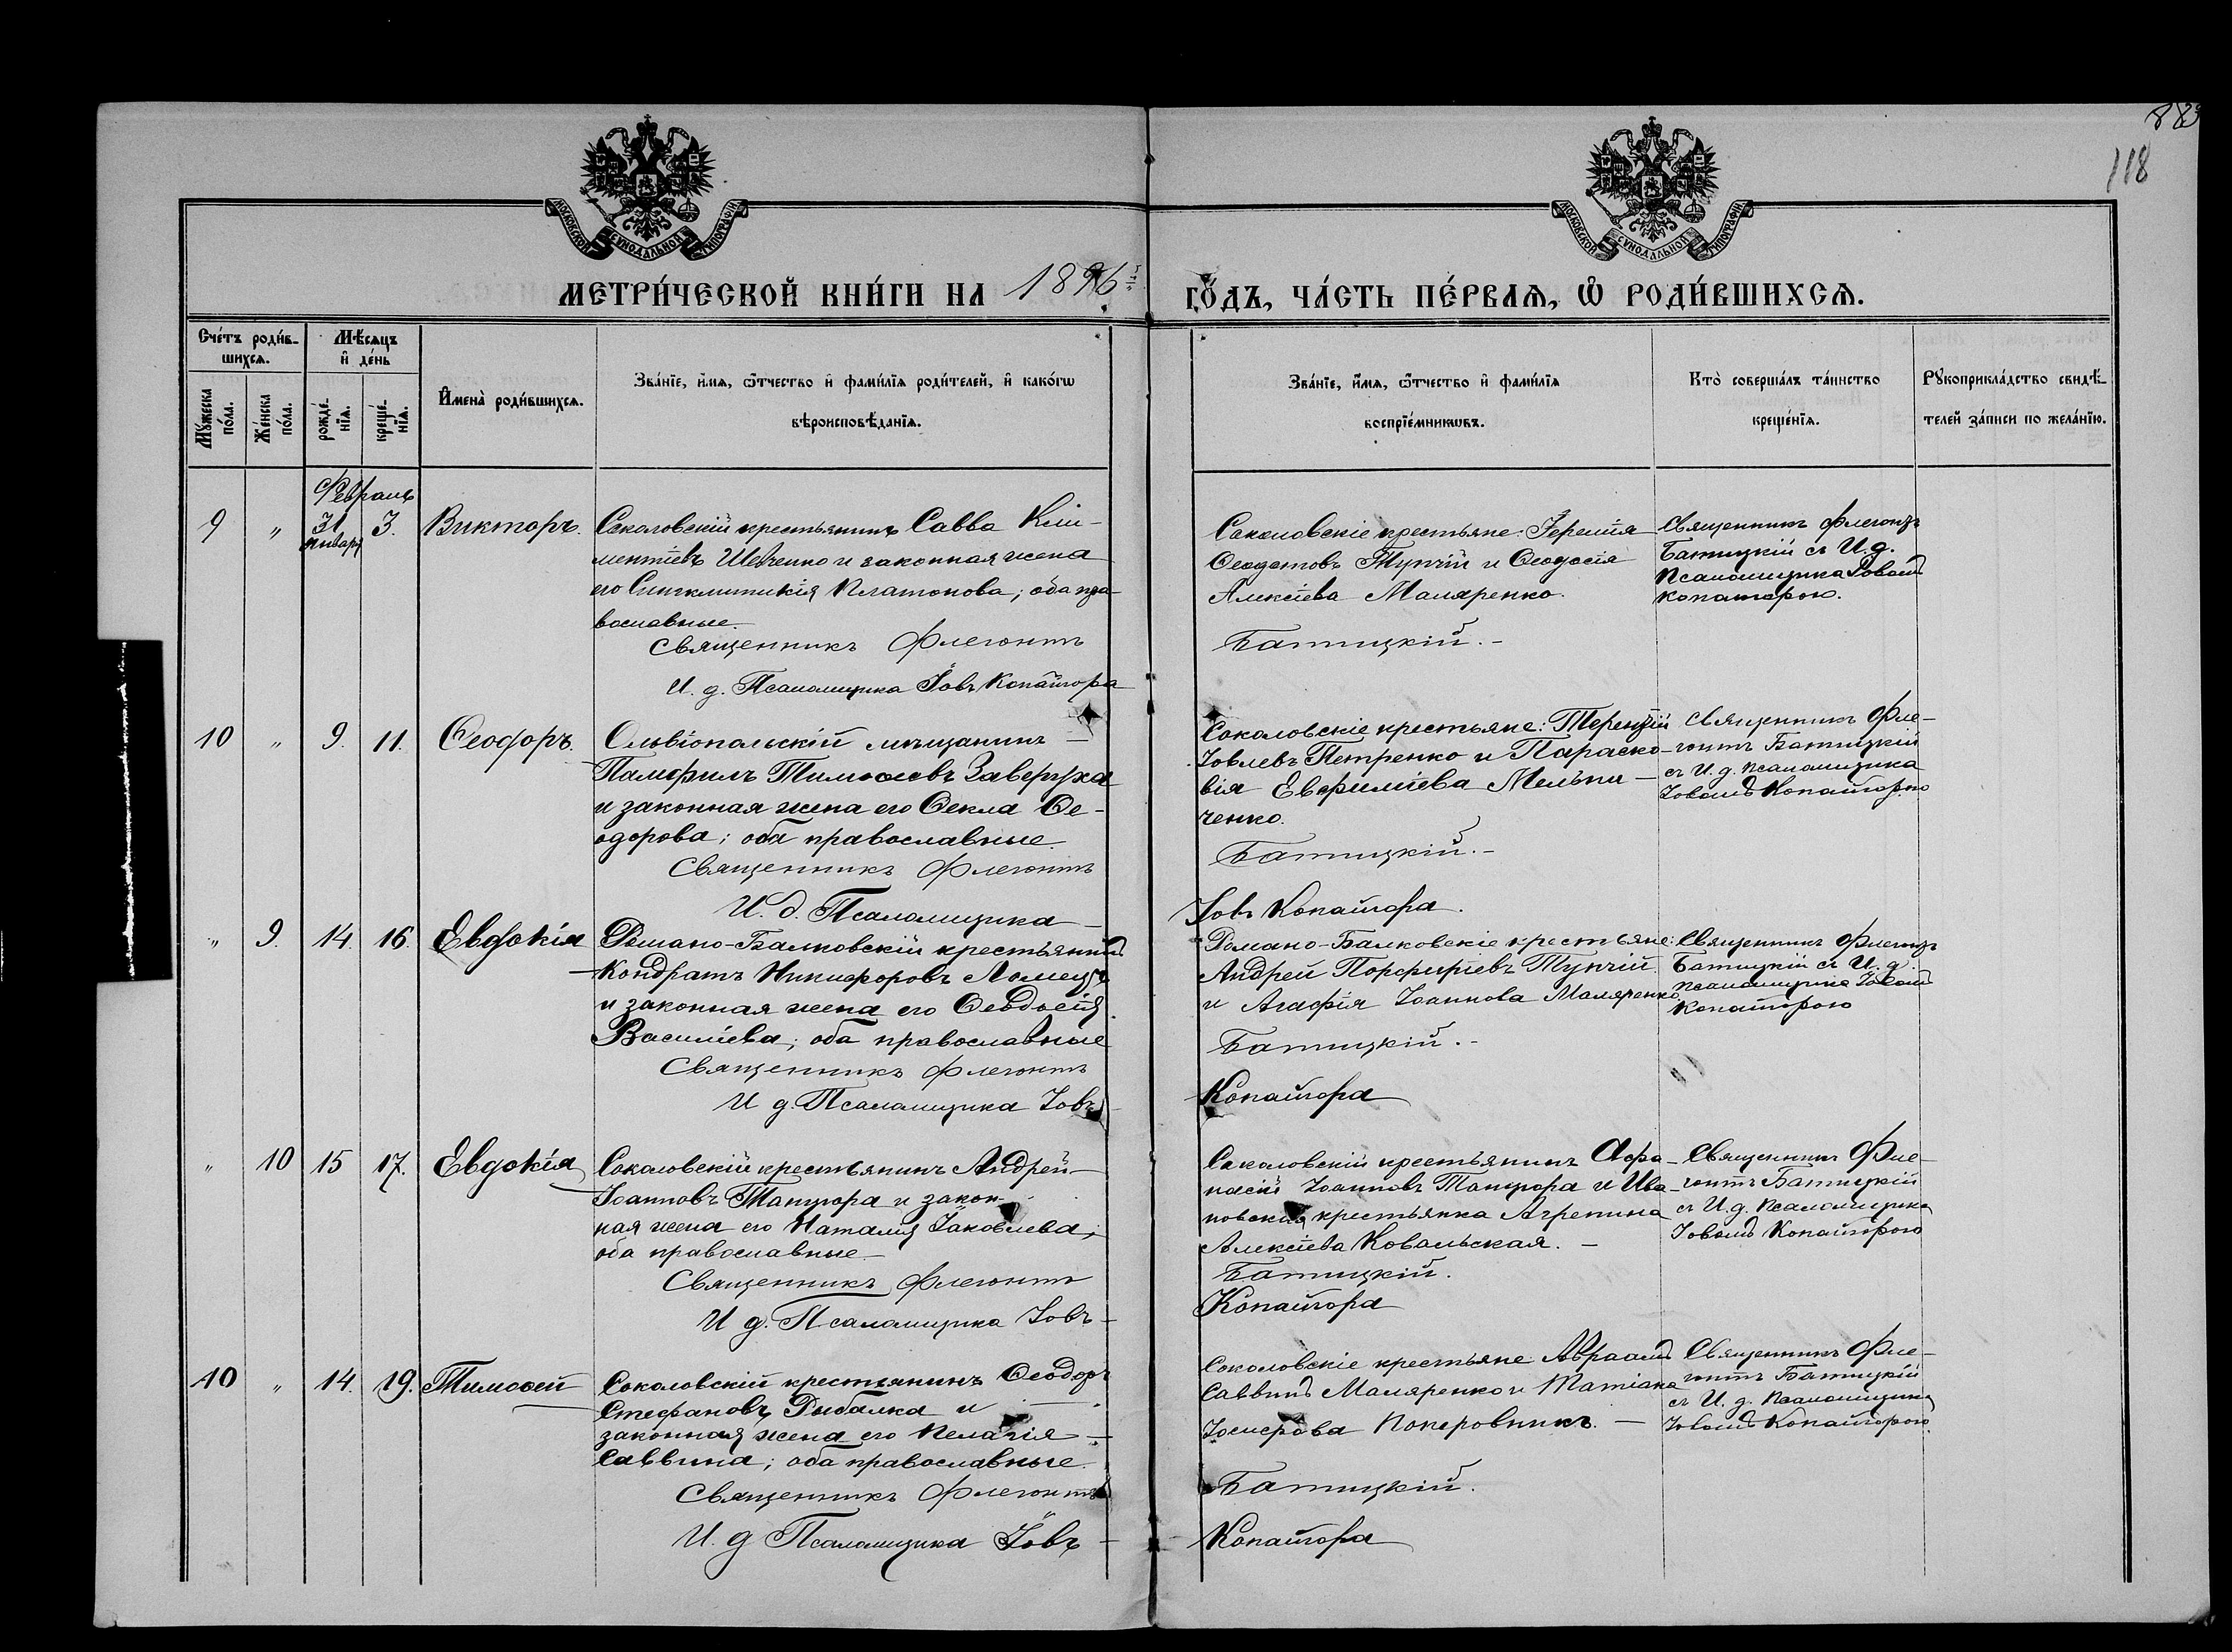 883
118
МОСКОВСКОЙ СѴНОДАЛЬНОЙ ТИПОГРАФІИ
МОСКОВСКОЙ СѴНОДАЛЬНОЙ ТИПОГРАФІИ
МЕТРИ́ЧЕСКОЙ КНИ́ГИ НА 1896й ГО́ДЪ, ЧА́СТЬ ПЕ́РВАѦ, Ѡ РОДИ́ВШИХСѦ.
Сче́тъ роди́в-
шихсѧ.
Мꙋ́жеска по́ла.
Же́нска по́ла.
Мѣ́сѧцъ и҆ де́нь
рожде́-нїѧ.
креще́-нїѧ.
И҆мена̀ роди́вшихсѧ.
Зва́нїе, и҆́мѧ, ѻ҆́тчество и҆ фами́лїѧ роди́телей, и҆ како́гѡ
вѣроисповѣ́данїѧ.
Зва́нїе, и҆́мѧ, ѻ҆́тчество и҆ фами́лїѧ
воспрїе́мникѡвъ.
Кто̀ соверша́лъ та́инство
креще́нїѧ.
Рꙋкоприкла́дство свидѣ́-
телей за́писи по жела́нїю.
Февраль
9 " 31 Января 3. Викторъ.
Соколовскій крестьянинъ Савва Кли-
ментіевъ Шевченко и законная жена
его Синклитикія Платонова; оба пра-
вославные.
Священникъ Флегонтъ
И. д. Псаломщика Іовъ Копайгора
Соколовскіе крестьяне: Іеремія
Ѳеодотовъ Тупчій и Ѳеодосія
Алексіева Маляренко.
Батицкій.-
Священникъ Флегонтъ
Батицкій съ И. д.
Псаломщика Іовомъ
Копайгорою.
10 " 9. 11. Ѳеодоръ.
Ольвіопольскій мѣщанинъ
Памфилъ Тимоѳеевъ Заверуха
и законная жена его Ѳекла Ѳе-
одорова; оба православные.
Священникъ Флегонтъ
И. д. Псаломщика
Соколовскіе крестьяне: Терентій
Іовлевъ Петренко и Параске-
вія Евфиміева Мельни-
ченко.
Батицкій.-
Іовъ Копайгора.
Священникъ Фле-
гонтъ Батицкій
съ И. д. псаломщика
Іовомъ Копайгорою
" 9. 14. 16. Евдокія
Романо-Балковскій крестьянинъ
Кондратъ Никифоровъ
и законная жена его Ѳеодосія
Василіева; оба православные
Священникъ Флегонтъ
И д. Псаломщика Іовъ
Романо-Балковскіе крестьяне:
Андрей Порфиріевъ Тупчій
и Агафія Іоаннова Маляренко
Батицкій.-
Копайгора
Священникъ Флегонтъ
Батицкій съ И. д.
псаломщика Іовомъ
Копайгорою
" 10 15 17. Евдокія
Соколовскій крестьянинъ Андрей
Іоанновъ Танцюра и закон-
ная жена его Наталія Іаковлева;
оба православные
Священникъ Флегонтъ
И д. Псаломщика Іовъ
Соколовскій крестьянинъ Афа-
насій Іоанновъ Танцюра и Ива-
новская крестьянка Агрепина
Алексіева Ковальская.
Батицкій.
Копайгора
Священникъ Фле-
гонтъ Батицкій
съ И. д. Псаломщика
Іовомъ Копайгорою
10 " 14. 19. Тимоѳей
Соколовскій крестьянинъ Ѳеодоръ
Стефановъ Рыбалка и
законная жена его Пелагія
Саввина; оба православные.
Священникъ Флегонтъ
И. д Псаломщика Іовъ
Соколовскіе крестьяне: Авраамъ
Саввинъ Маляренко и Татіана
Батицкій.
Копайгора
Священникъ Фле-
гонтъ Батицкій
съ И. д. Псаломщика
Іовомъ Копайгорою.